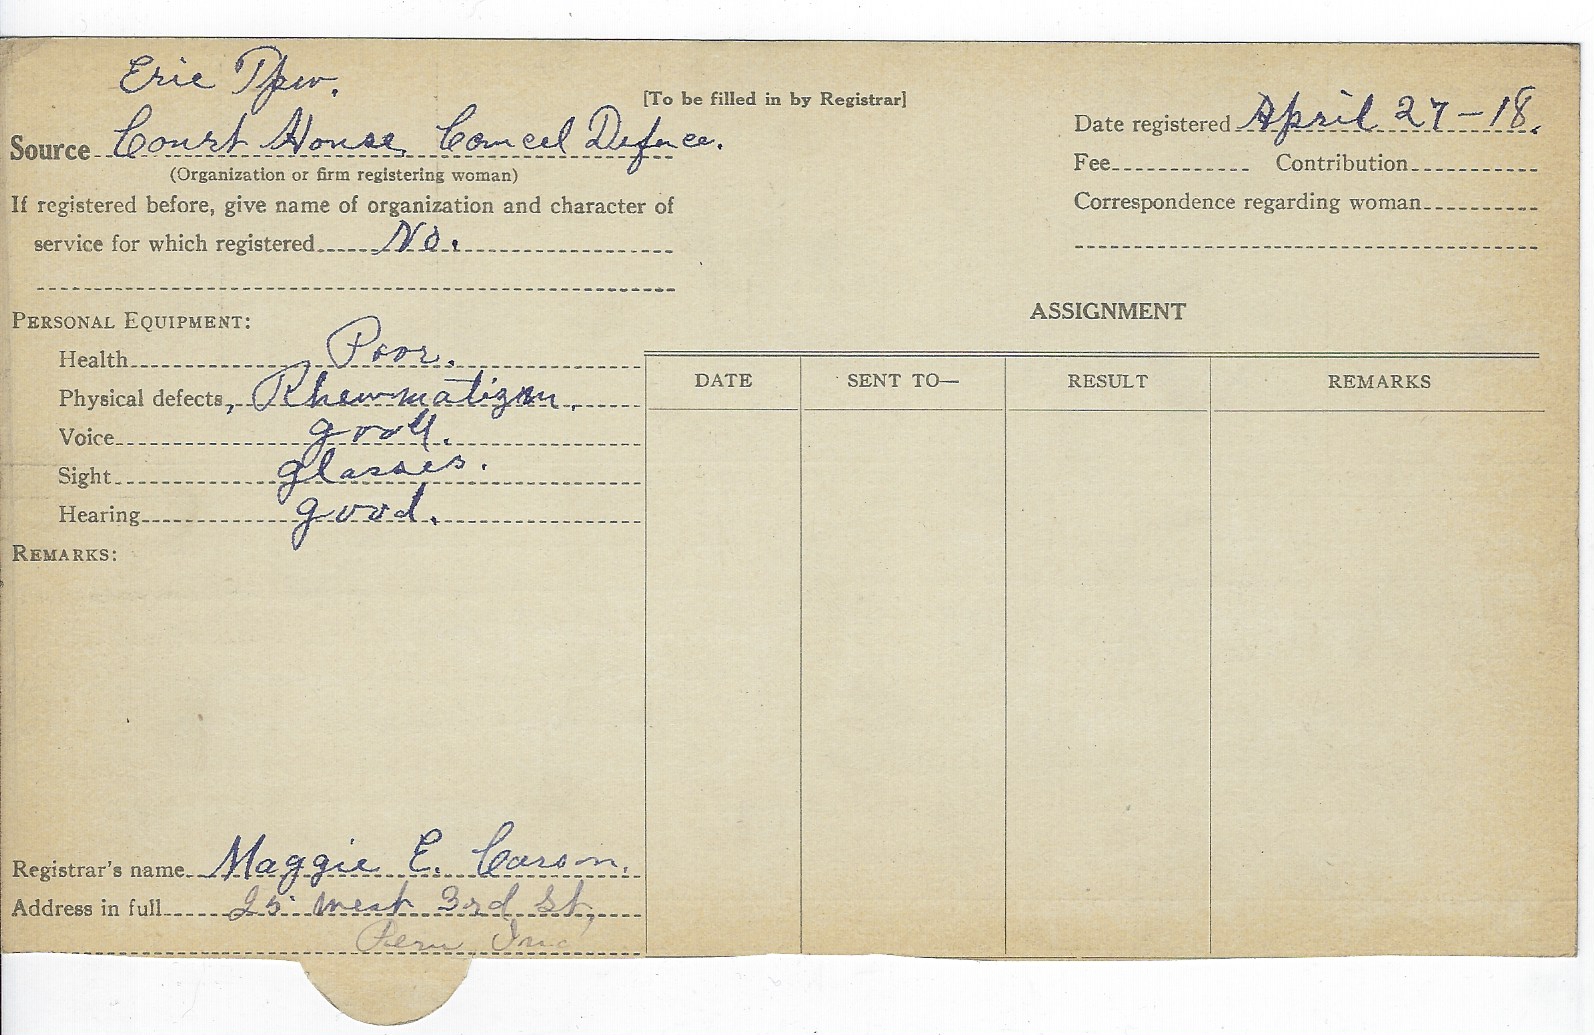 Erie Tpw.
[To be filled in by Registrar]
Source Court House Councel Defence.
(Organization or firm registering woman)
Date registered April 27-18.
Fee Contribution
Correspondence regarding woman
If registered before, give name of organization and character of
service for which registered No.
PERSONAL EQUIPMENT:
Health Poor.
Physical defects, Rhewmatizm.
Voice good.
Sight glasses.
Hearing good.
REMARKS:
Registrar's name Maggie E. Carson.
Address in full 25 West 3rd St,
Peru Ind
ASSIGNMENT
DATE SENT TO— RESULT REMARKS